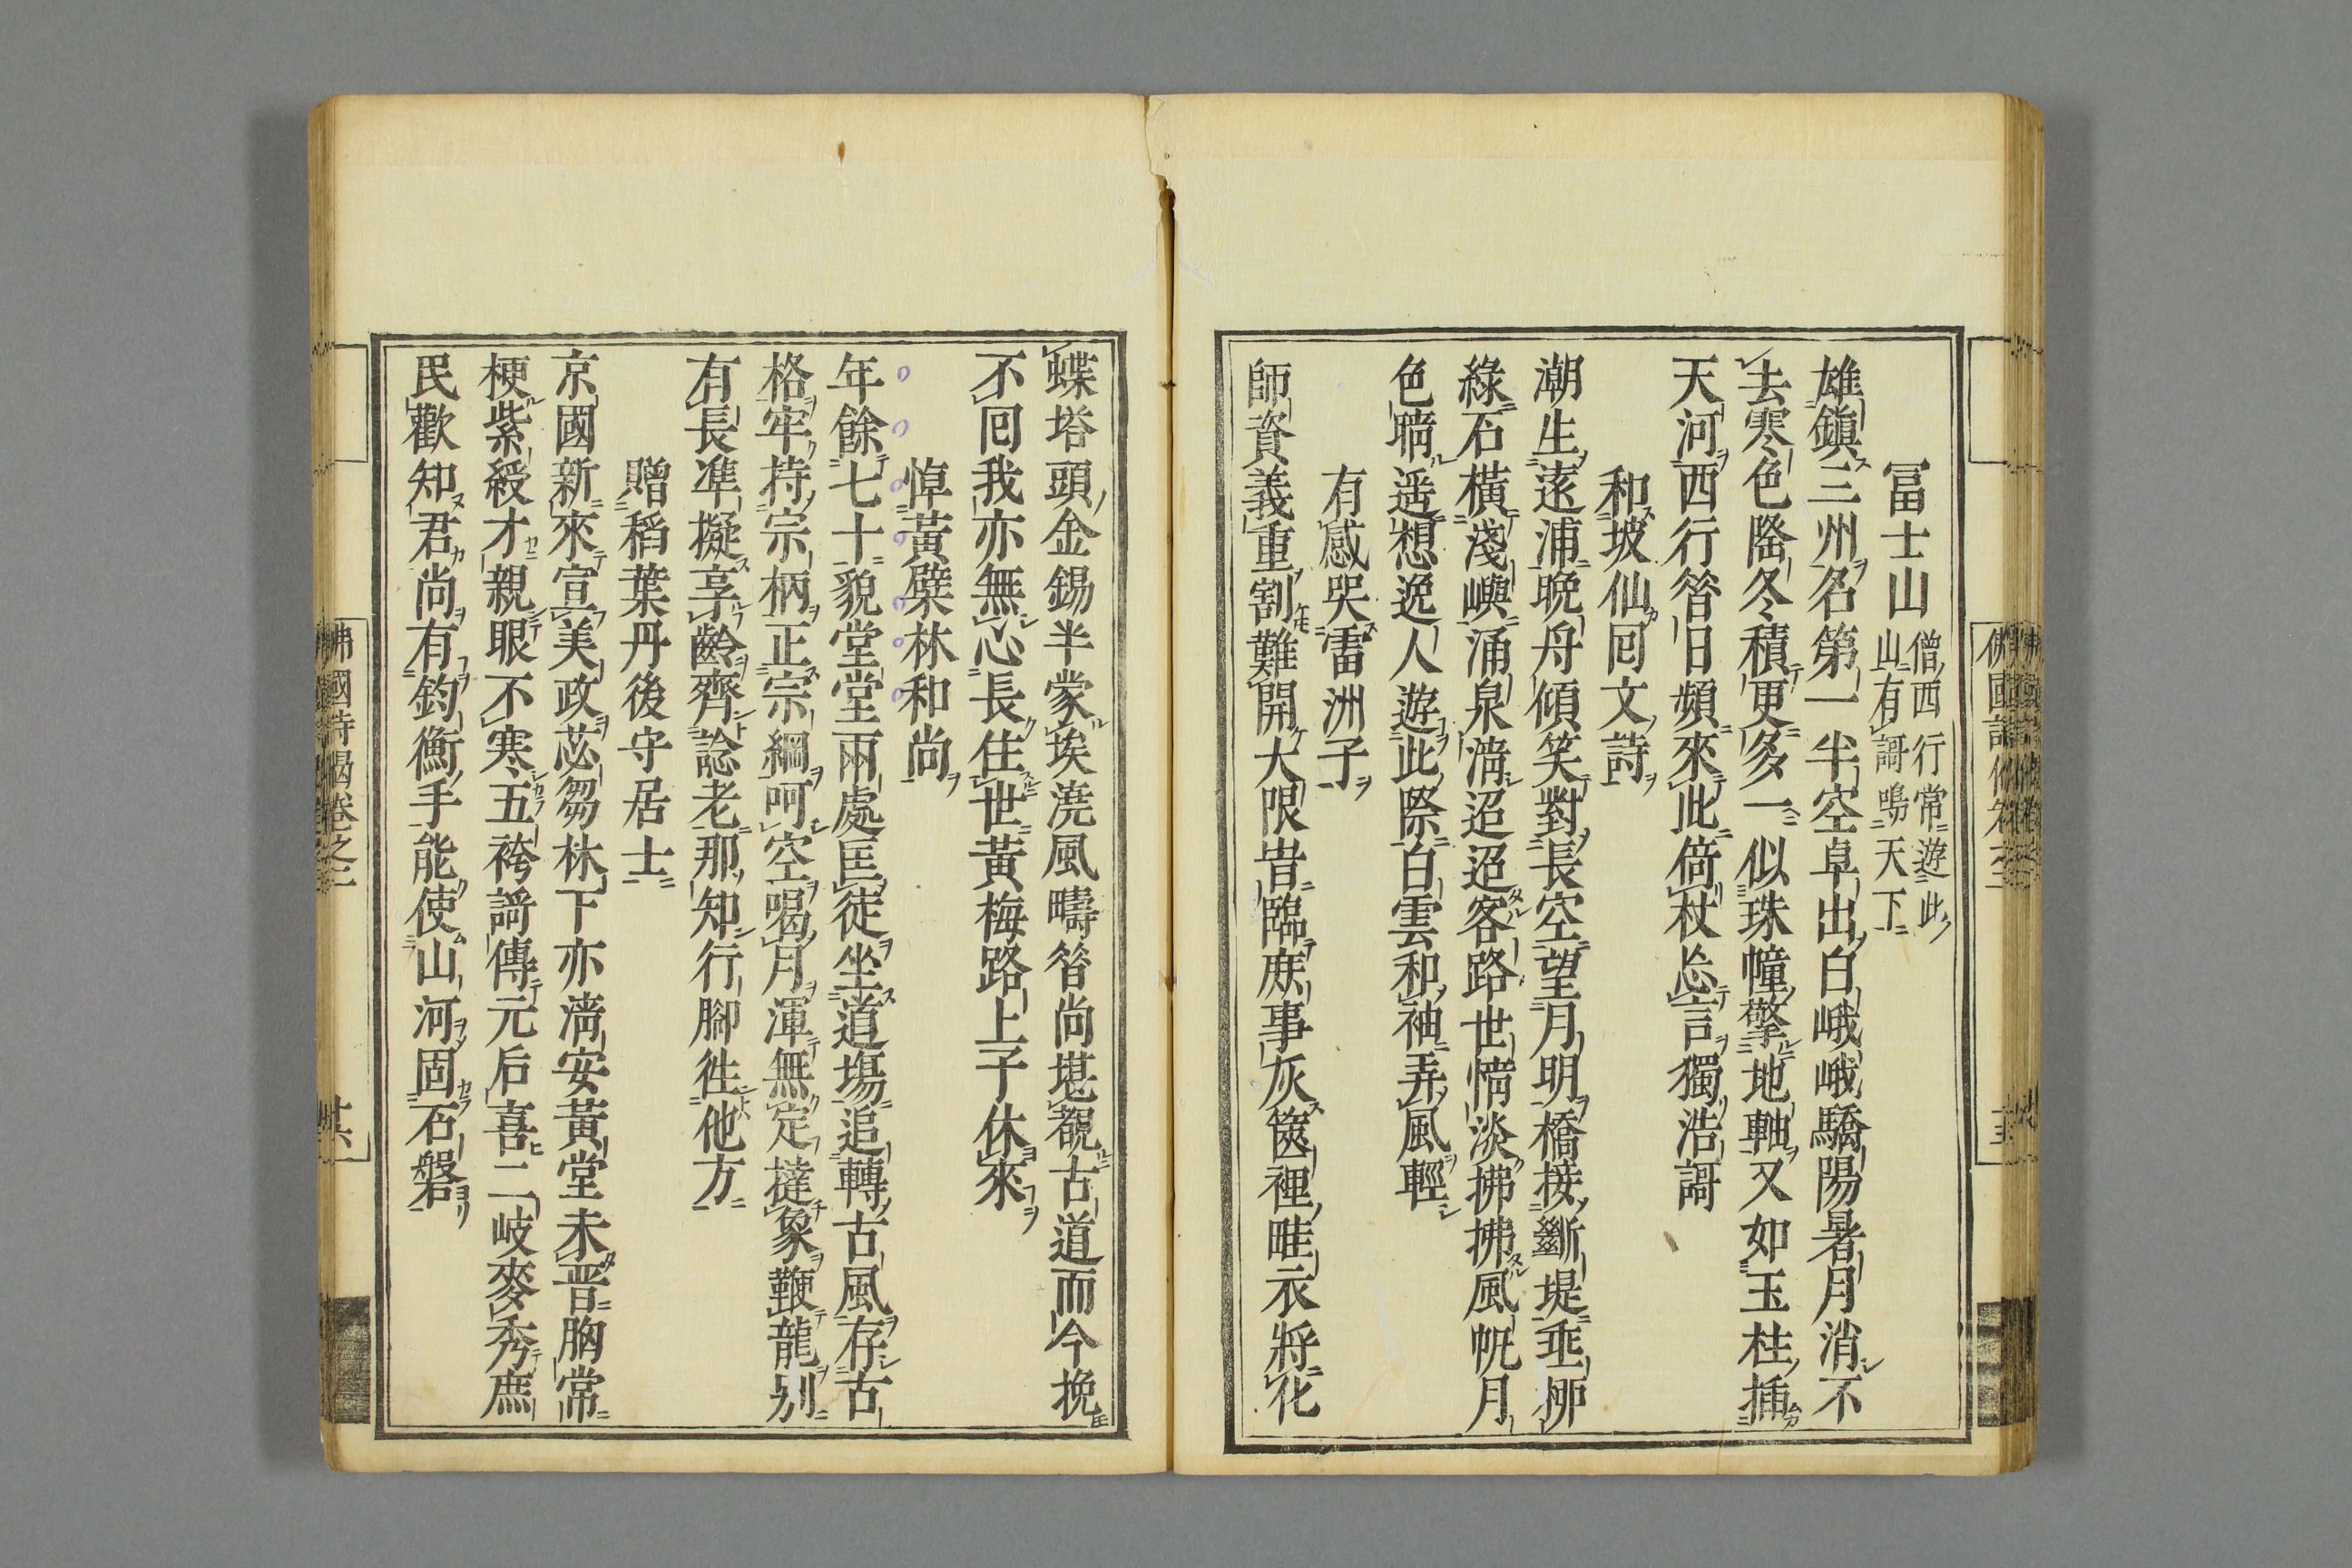 冨士山
僧西行常遊此
山有謌鳴天下
雄鎮三州名第一半空卓出白峨峨驕陽暑月消不
去寒色隆冬積更多一似珠幢擎地軸又如玉柱揷
天河西行昝日頻來此倚杖忘言獨浩謌
和坡仙囘文詩
潮生遠浦晩舟傾笑對長空望月明橋接斷堤垂柳
綠石橫淺嶼涌泉淸迢迢客路世情淡拂拂風帆月
色晴遥想逸人遊此際白雲和袖弄風輕
有感哭雷洲子
師資義重割難開大限昔臨庶事灰篋裡唯衣將化
蝶塔頭金錫半蒙埃澆風疇昝尚堪覩古道而今挽
不囘我亦無心長住世黃梅路上子休來
悼黃檗林和尚
年餘七十貌堂堂兩處匡徒坐道塲追轉古風存古
格牢持宗柄正宗綱呵空喝月渾無定撻象鞭龍别
有長準擬享齡齊諗老那知行腳徃他方
贈稻葉丹後守居士
京國新來宣美政苾芻林下亦淸安黃堂未晋胸常
梗紫綬才親眼不寒五袴謌傳元后喜二岐麥秀庶
民歡知君尚有鈞衡手能使山河固石磐
佛國詩偈卷之二
廿六